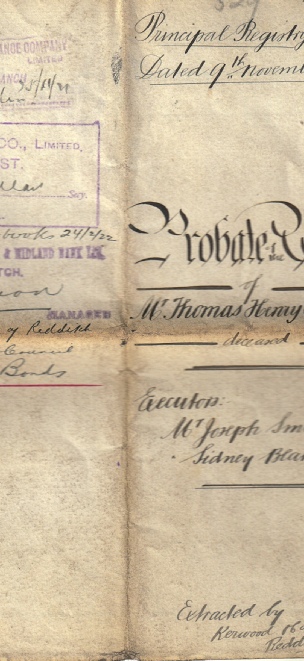 ANCE COMPANY
LIMITED
ANCH
CO., LIMITED,
ST.
Secy.
books 24/2/22
& MIDLAND BANK Ltd.
TCH.
MANAGER
of Redditch
Council
Bonds
Principal Registry
Dated 9th Novem
Probate of the
of
Mr Thomas Henry
deceased
Executors:
Mr Joseph Sm
Sidney Bla
Extracted by
Kerwood &
Redd